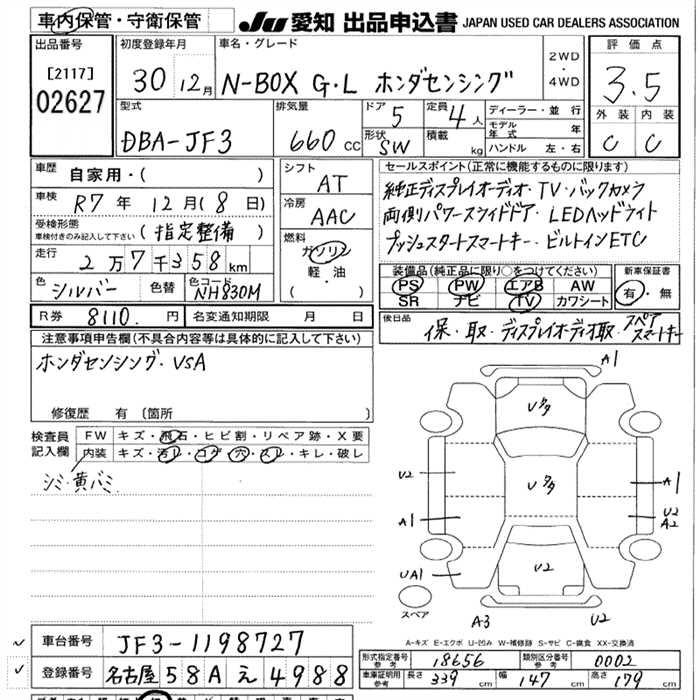 車内保管・守衛保管
JU 愛知 出品申込書 JAPAN USED CAR DEALERS ASSOCIATION
出品番号
[2117]
02627
初度登録年月
30 12月
車名・グレード
N-BOX G・L ホンダセンシング
2WD
・
4WD
評価点
3.5
外装 内装
C C
型式
DBA-JF3
排気量
660 CC
ドア 5
定員 4人
形状 SW
積載 kg
ディーラー・並行
モデル年式 年
ハンドル 左・右
車歴 自家用・( )
車検 R7年 12月(8日)
受検形態
車検付きのみ記入して下さい (指定整備)
走行 2万7千358km
色 シルバー 色替 色コード NH830M
シフト
AT
冷房
AAC
燃料
ガソリン
軽・油
( )
セールスポイント(正常に機能するものに限ります)
純正ディスプレイオーディオ・TV・バックカメラ
両側パワースライドドア・LEDヘッドライト
プッシュスタートスマートキー・ビルトインETC
装備品(純正品に限り○をつけてください)
PS PW エアB AW
SR ナビ TV カワシート
新車保証書
有・無
R券 8110.円 名変通知期限 月 日
後日品
保・取・ディスプレイオーディオ取・スペアスマートキー
注意事項申告欄(不具合内容等は具体的に記入して下さい)
ホンダセンシング・VSA
修復歴 有 〔箇所 〕
検査員記入欄
FW キズ・飛石・ヒビ割・リペア跡・X要
内装 キズ・汚レ・コゲ・穴・スレ・キレ・破レ
シミ・黄バミ
A1
U2
U2
A1
A1
U2
A2
UA1
U2
スペア
A3
U2
A-キズ E-エクボ U-凹み W-補修跡 S-サビ C-腐食 XX-交換済
車台番号 JF3-1198727
登録番号 名古屋 58A え 4988
形式指定番号 参考 18656 類別区分番号 参考 0002
車庫証明用 参考 長さ 339 cm 幅 147 cm 高さ 179 cm